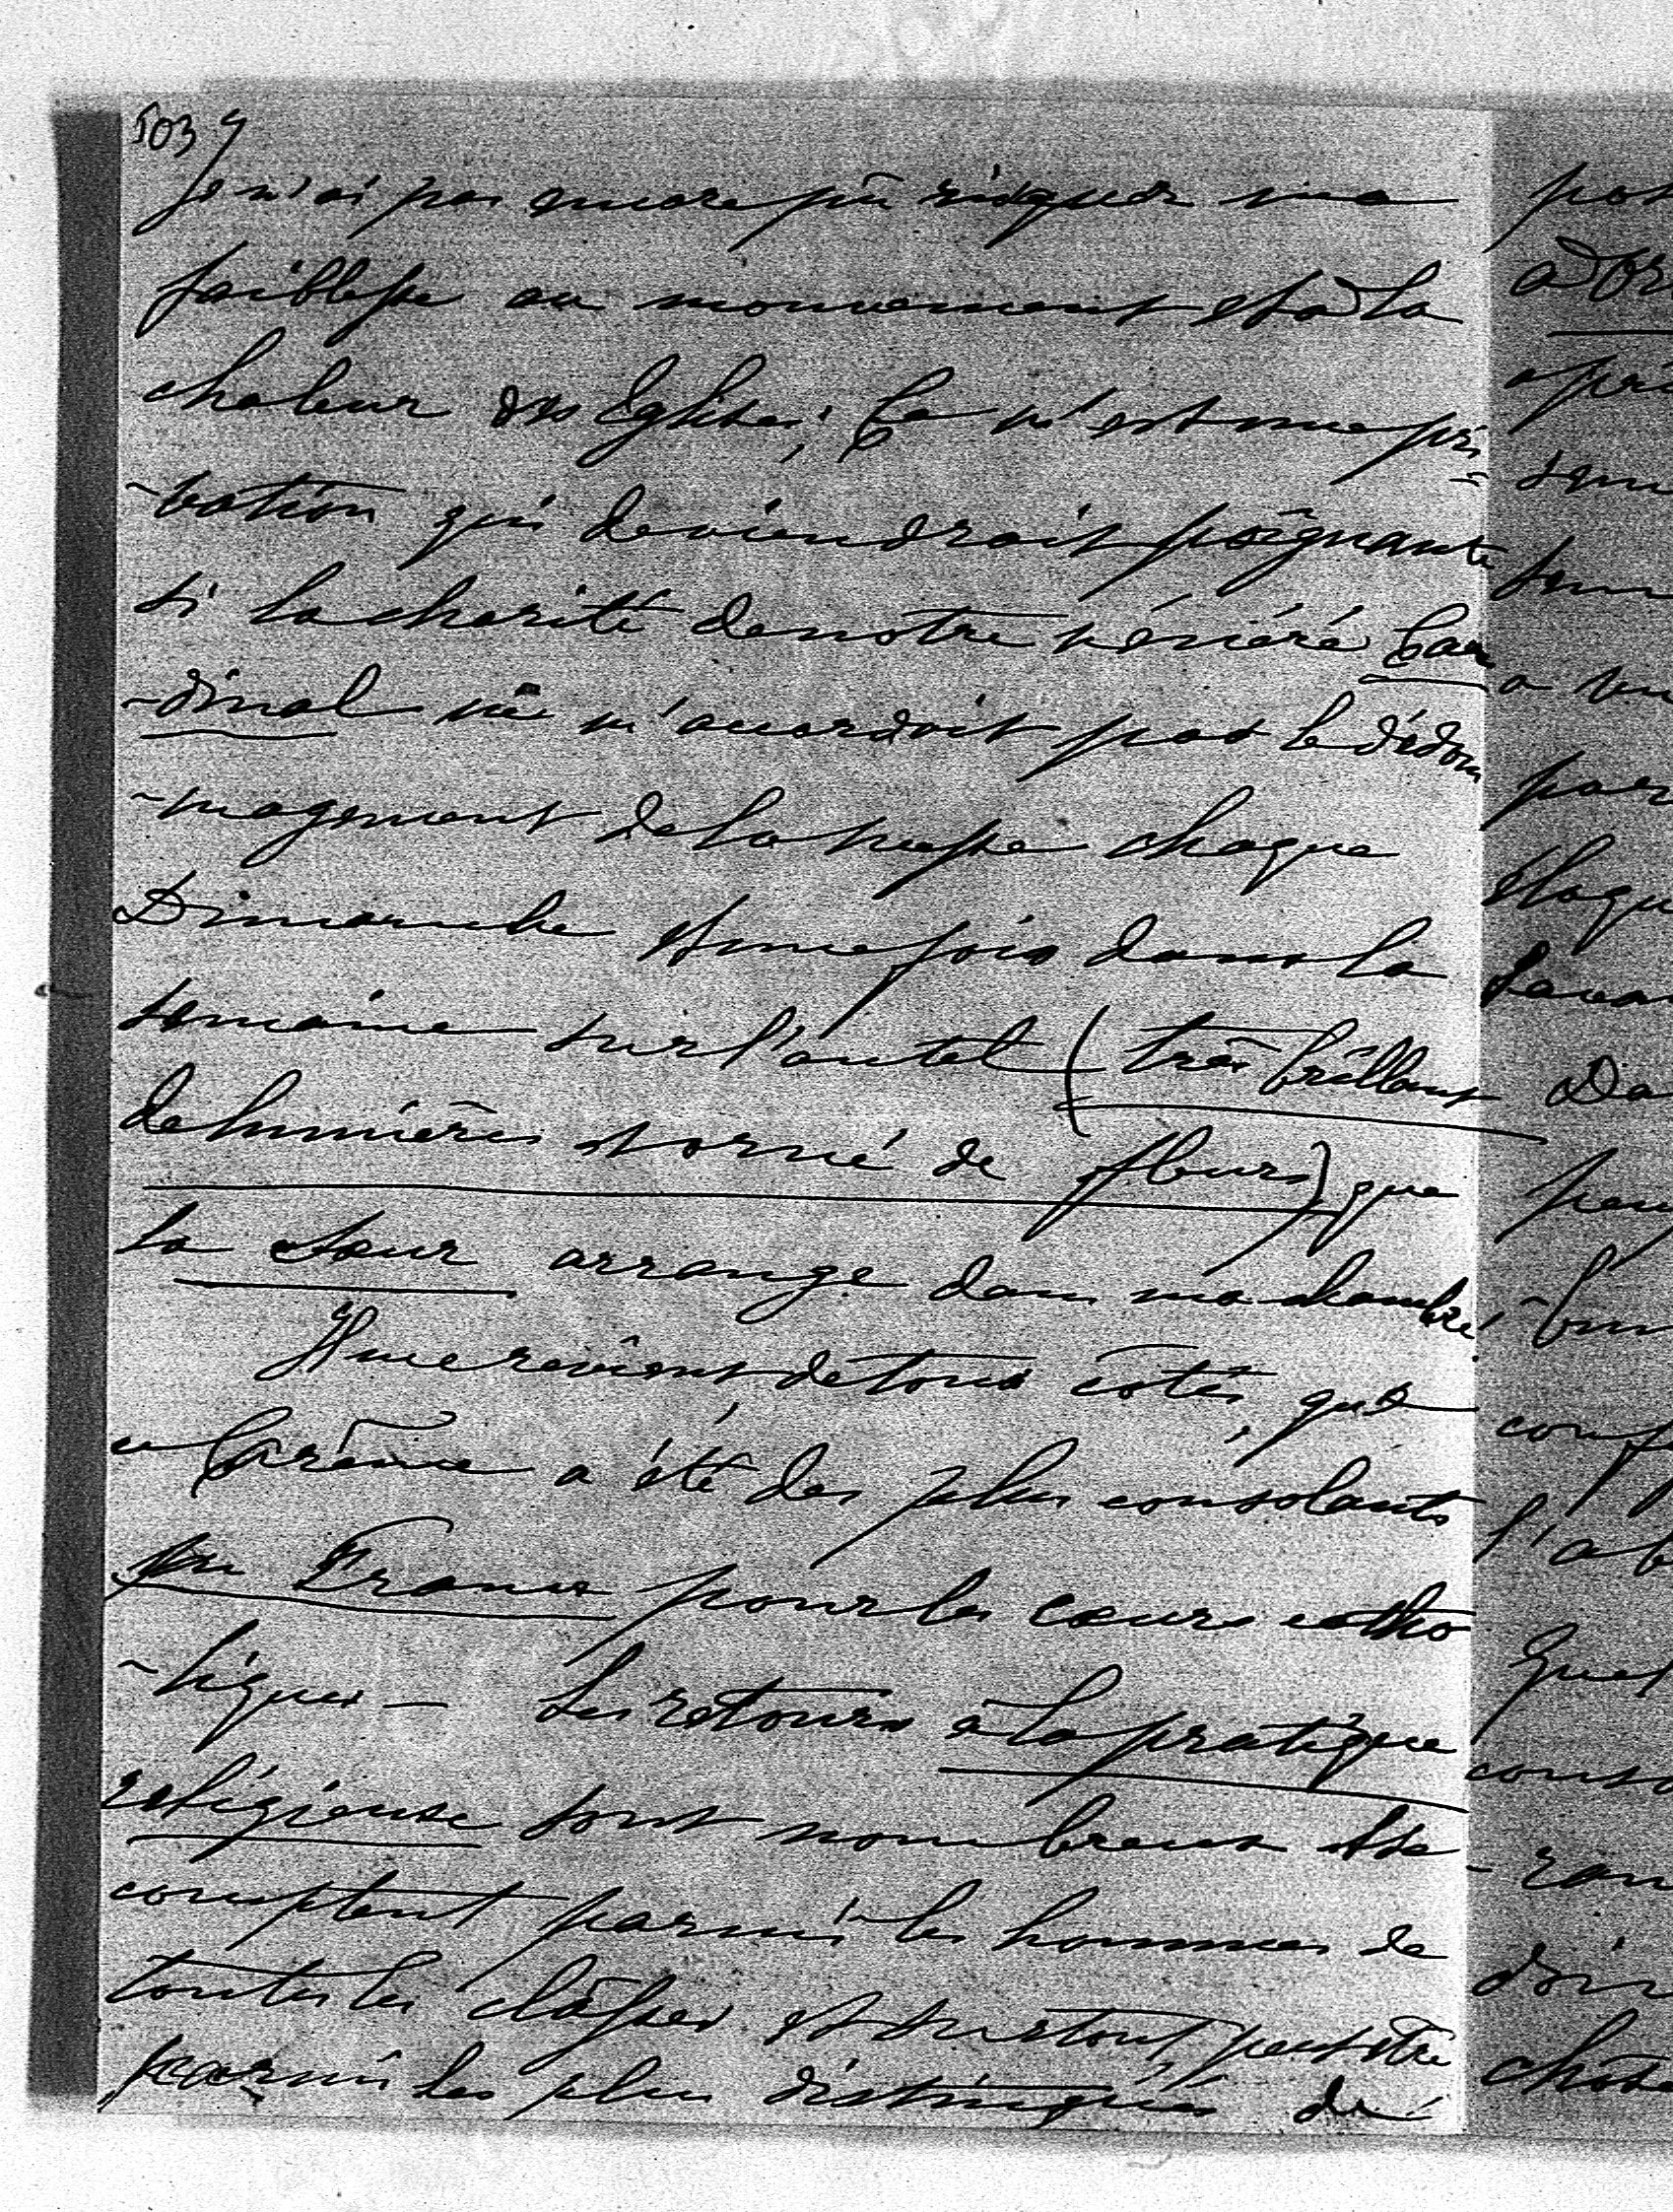 5039
Je n'ai pas encore pû risquer ma
faiblesse au mouvement et à la
chaleur des Eglises; Ce m'est une pri
-vation qui deviendrait poignante
si la charité de notre vénéré Car
-dinal ne m'accordait pas le dédom
-magement de la messe chaque
Dimanche et une fois dans la
semaine sur l'autel (très brillant
de lumières et orné de fleurs) que
la Sœur arrange dans ma chambre!
Il me revient de tous côtés, que
ce Carême a été des plus consolants
en France pour les cœurs catho
-liques — Les retours à la pratique
religieuse sont nombreux et se
comptent parmi les hommes de
toutes les classes et surtout peut être
parmi les plus distingués de